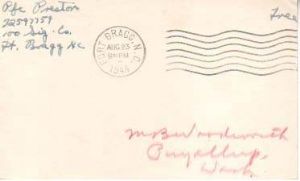 Pfc Preston
Free
100 Sig. Co.
Ft. Bragg NC
FORT BRAGG, N.C.
AUG 23
PM
Puyallup,
Wash.